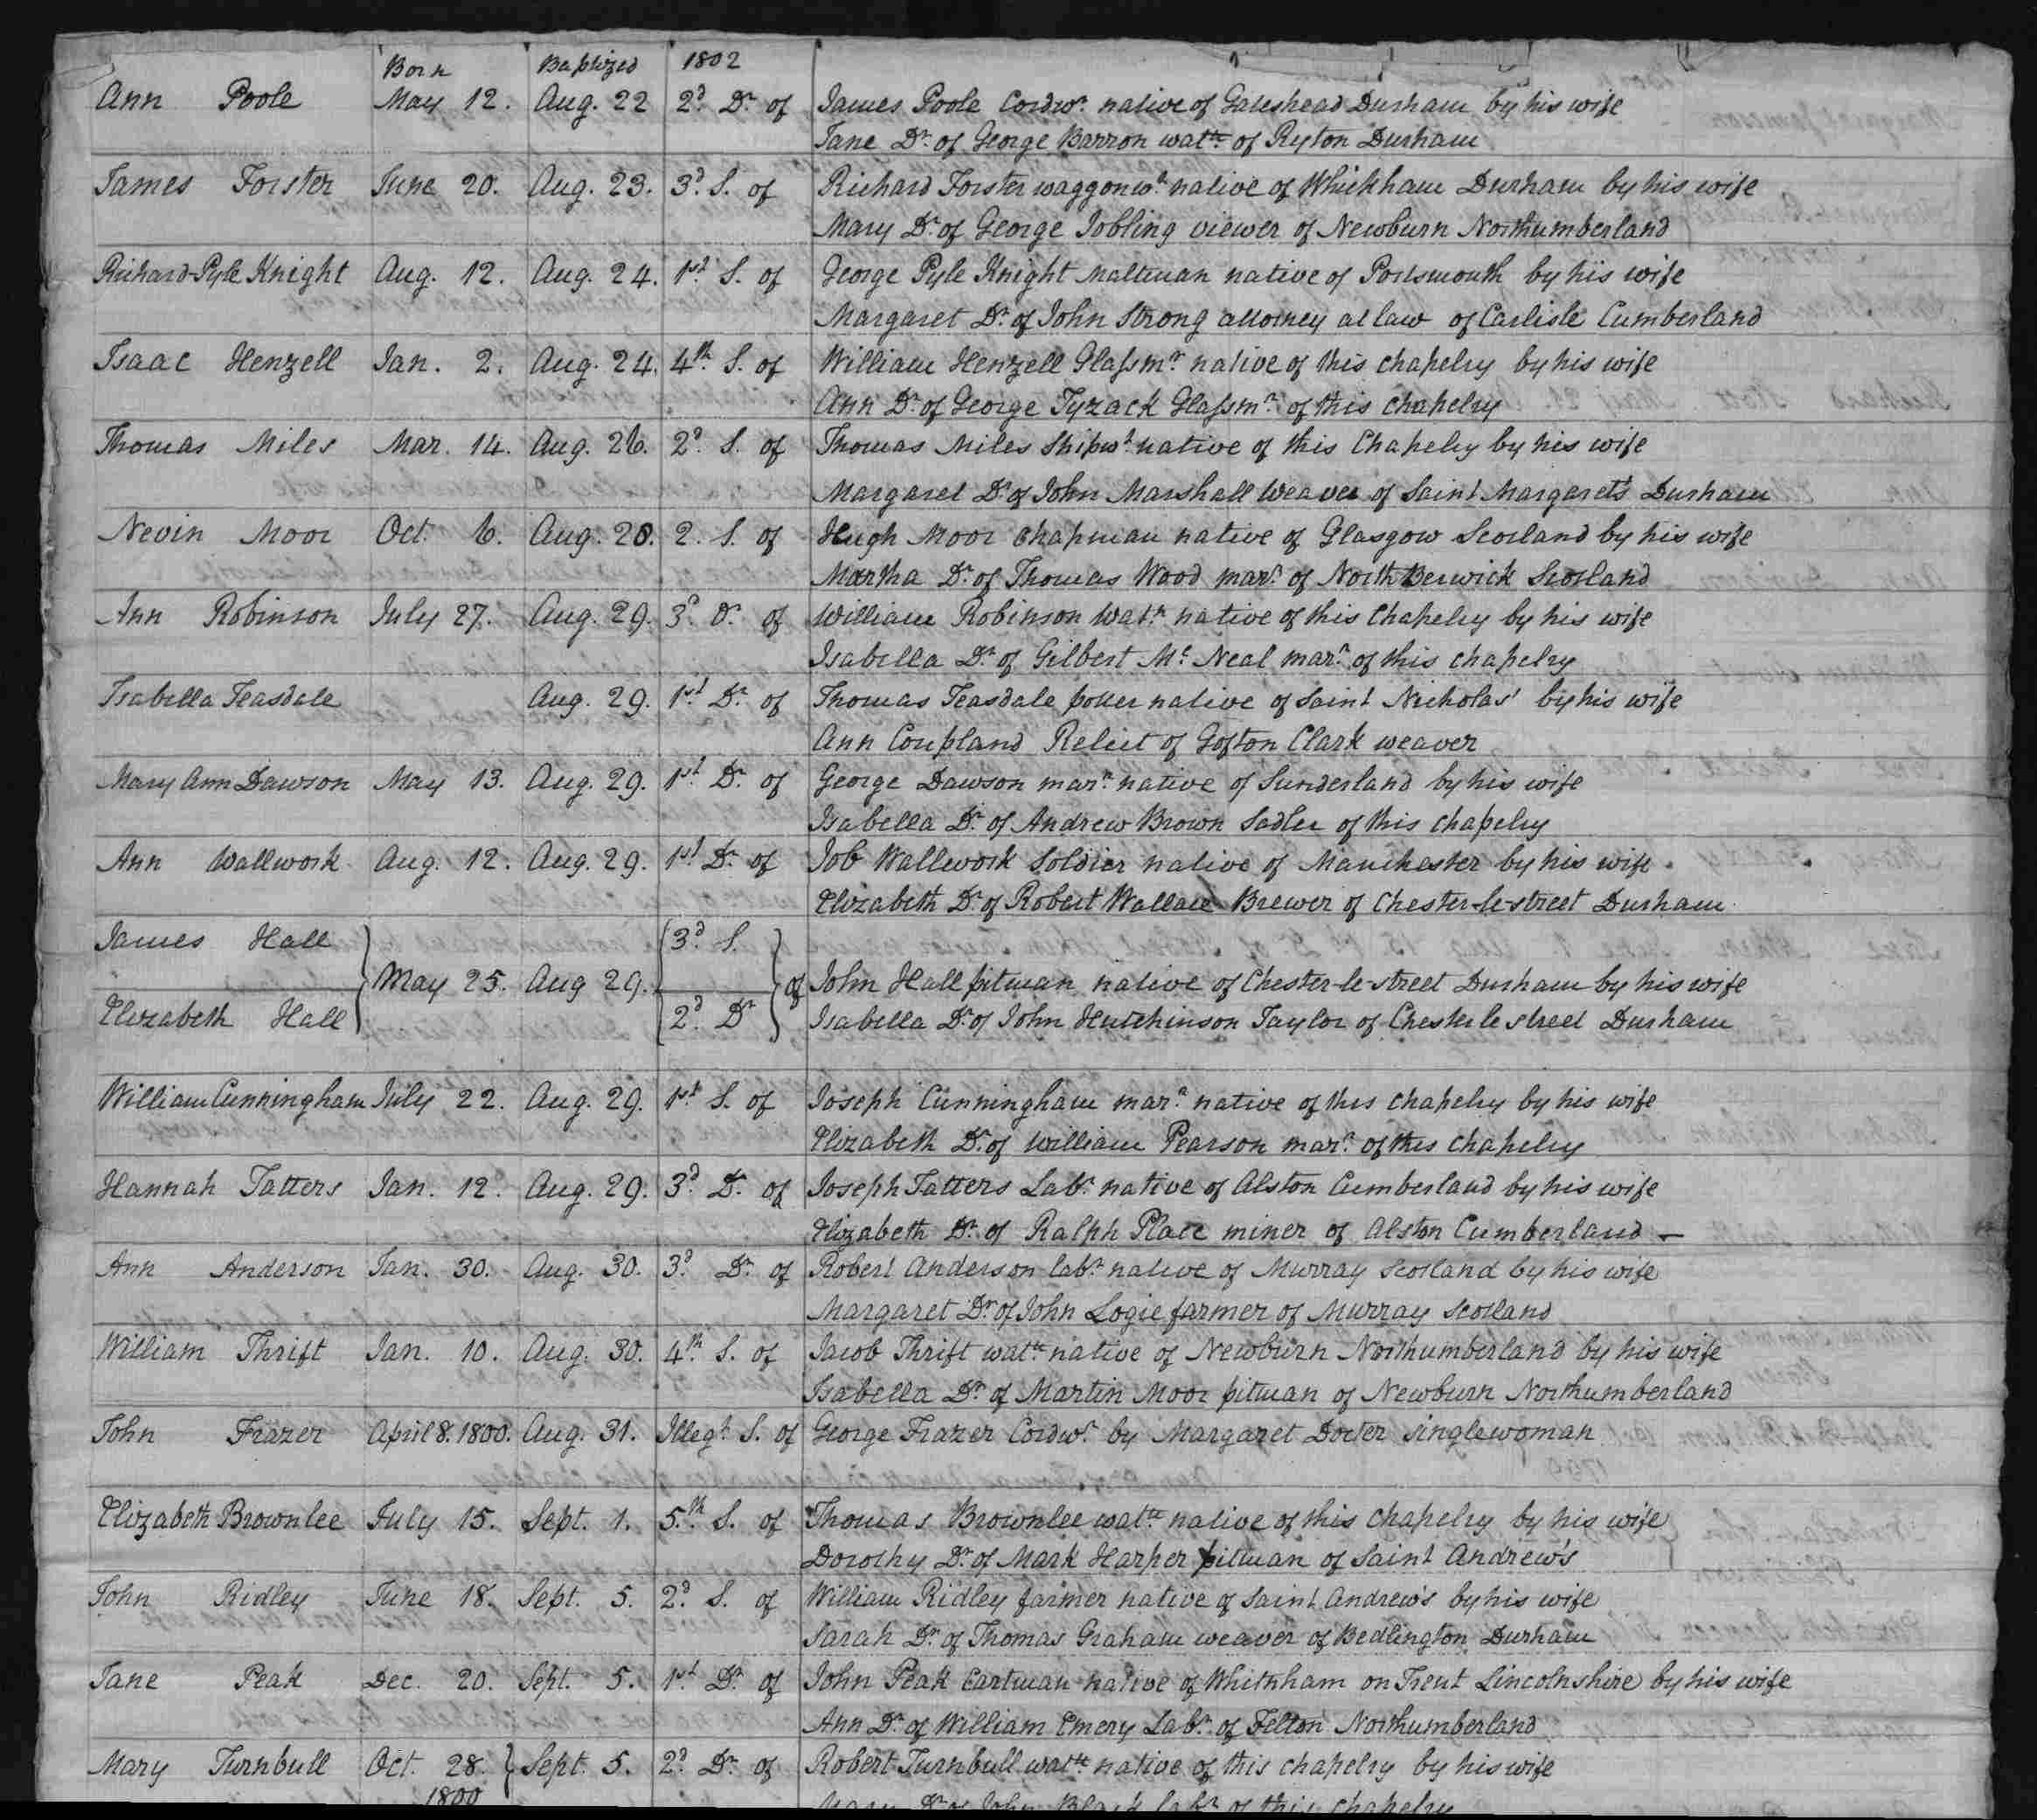 Born Baptized 1802
Ann Poole May 12. Aug. 22 2d. Dr. of James Poole Cordwr. native of Gateshead Durham by his wife
Jane Dr. of George Barron watn. of Ryton Durham
James Forster June 20. Aug. 23. 3d. S. of Richard Forster waggonwt. native of Whickham Durham by his wife
Mary Dr. of George Jobling viewer of Newburn Northumberland
Richard Pyle Knight Aug. 12. Aug. 24. 1st. S. of George Pyle Knight maltman native of Portsmouth by his wife
Margaret Dr. of John Strong attorney at law of Carlisle Cumberland
Isaac Henzell Jan. 2. Aug. 24. 4th. S. of William Henzell Glassmr. native of this chapelry by his wife
Ann Dr. of George Tyzack Glassmr. of this chapelry
Thomas Miles Mar. 14. Aug. 26. 2d. S. of Thomas Miles Shipwt. native of this Chapelry by his wife
Margaret Dr. of John Marshall Weaver of Saint Margaret's Durham
Nevin Moor Oct. 6. Aug. 28. 2. S. of Hugh Moor Chapman native of Glasgow Scotland by his wife
Martha Dr. of Thomas Wood marr. of North Berwick Scotland
Ann Robinson July 27. Aug. 29. 3d. Dr. of William Robinson Watn. native of this Chapelry by his wife
Isabella Dr. of Gilbert Mc. Neal marr. of this chapelry
Isabella Teasdale Aug. 29. 1st. Dr. of Thomas Teasdale potter native of Saint Nicholas' by his wife
Ann Coupland Relict of Gofton Clark weaver
Mary Ann Dawson May 13. Aug. 29. 1st. Dr. of George Dawson marr. native of Sunderland by his wife
Isabella Dr. of Andrew Brown Sadler of this chapelry
Ann Wallwork Aug. 12. Aug. 29. 1st. Dr. of Job Wallwork Soldier native of Manchester by his wife
Elizabeth Dr. of Robert Wallace Brewer of Chester-le-street Durham
James Hall 3d. S.
May 25. Aug 29. of John Hall pitman native of Chester-le-street Durham by his wife
Elizabeth Hall 2d. Dr Isabella Dr. of John Hutchinson Taylor of Chester le street Durham
William Cunningham July 22. Aug. 29. 1st. S. of Joseph Cunningham marr. native of this chapelry by his wife
Elizabeth Dr. of William Pearson marr. of this chapelry
Hannah Tatters Jan. 12. Aug. 29. 3d. Dr. of Joseph Tatters Labr. native of Alston Cumberland by his wife
Elizabeth Dr. of Ralph Place miner of Alston Cumberland —
Ann Anderson Jan. 30. Aug. 30. 3d. Dr. of Robert Anderson labr. native of Murray Scotland by his wife
Margaret Dr. of John Logie farmer of Murray Scotland
William Thrift Jan. 10. Aug. 30. 4th. S. of Jacob Thrift watn. native of Newburn Northumberland by his wife
Isabella Dr. of Martin Moor pitman of Newburn Northumberland
John Frazer April 8. 1800. Aug. 31. Illegt. S. of George Frazer Cordwr. by Margaret Docter singlewoman
Elizabeth Brownlee July 15. Sept. 1. 5th. S. of Thomas Brownlee watn. native of this chapelry by his wife
Dorothy Dr. of Mark Harper pitman of Saint Andrew's
John Ridley June 18. Sept. 5. 2d. S. of William Ridley farmer native of Saint Andrew's by his wife
Sarah Dr. of Thomas Graham weaver of Bedlington Durham
Jane Peak Dec. 20. Sept. 5. 1st. Dr. of John Peak Cartman native of Whitnham on Trent Lincolnshire by his wife
Ann Dr. of William Emery Labr. of Felton Northumberland
Mary Turnbull Oct. 28. Sept. 5. 2d. Dr. of Robert Turnbull watn. native of this chapelry by his wife
1800 Mary Dr. of John Black labr. of this chapelry